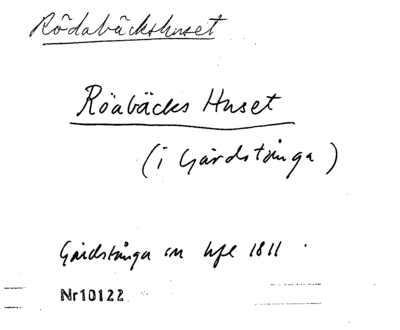 Rödabäckshuset
Röabäcks Huset
(i Gårdstånga)
Gårdstånga sn hfl 1811.
Nr10122